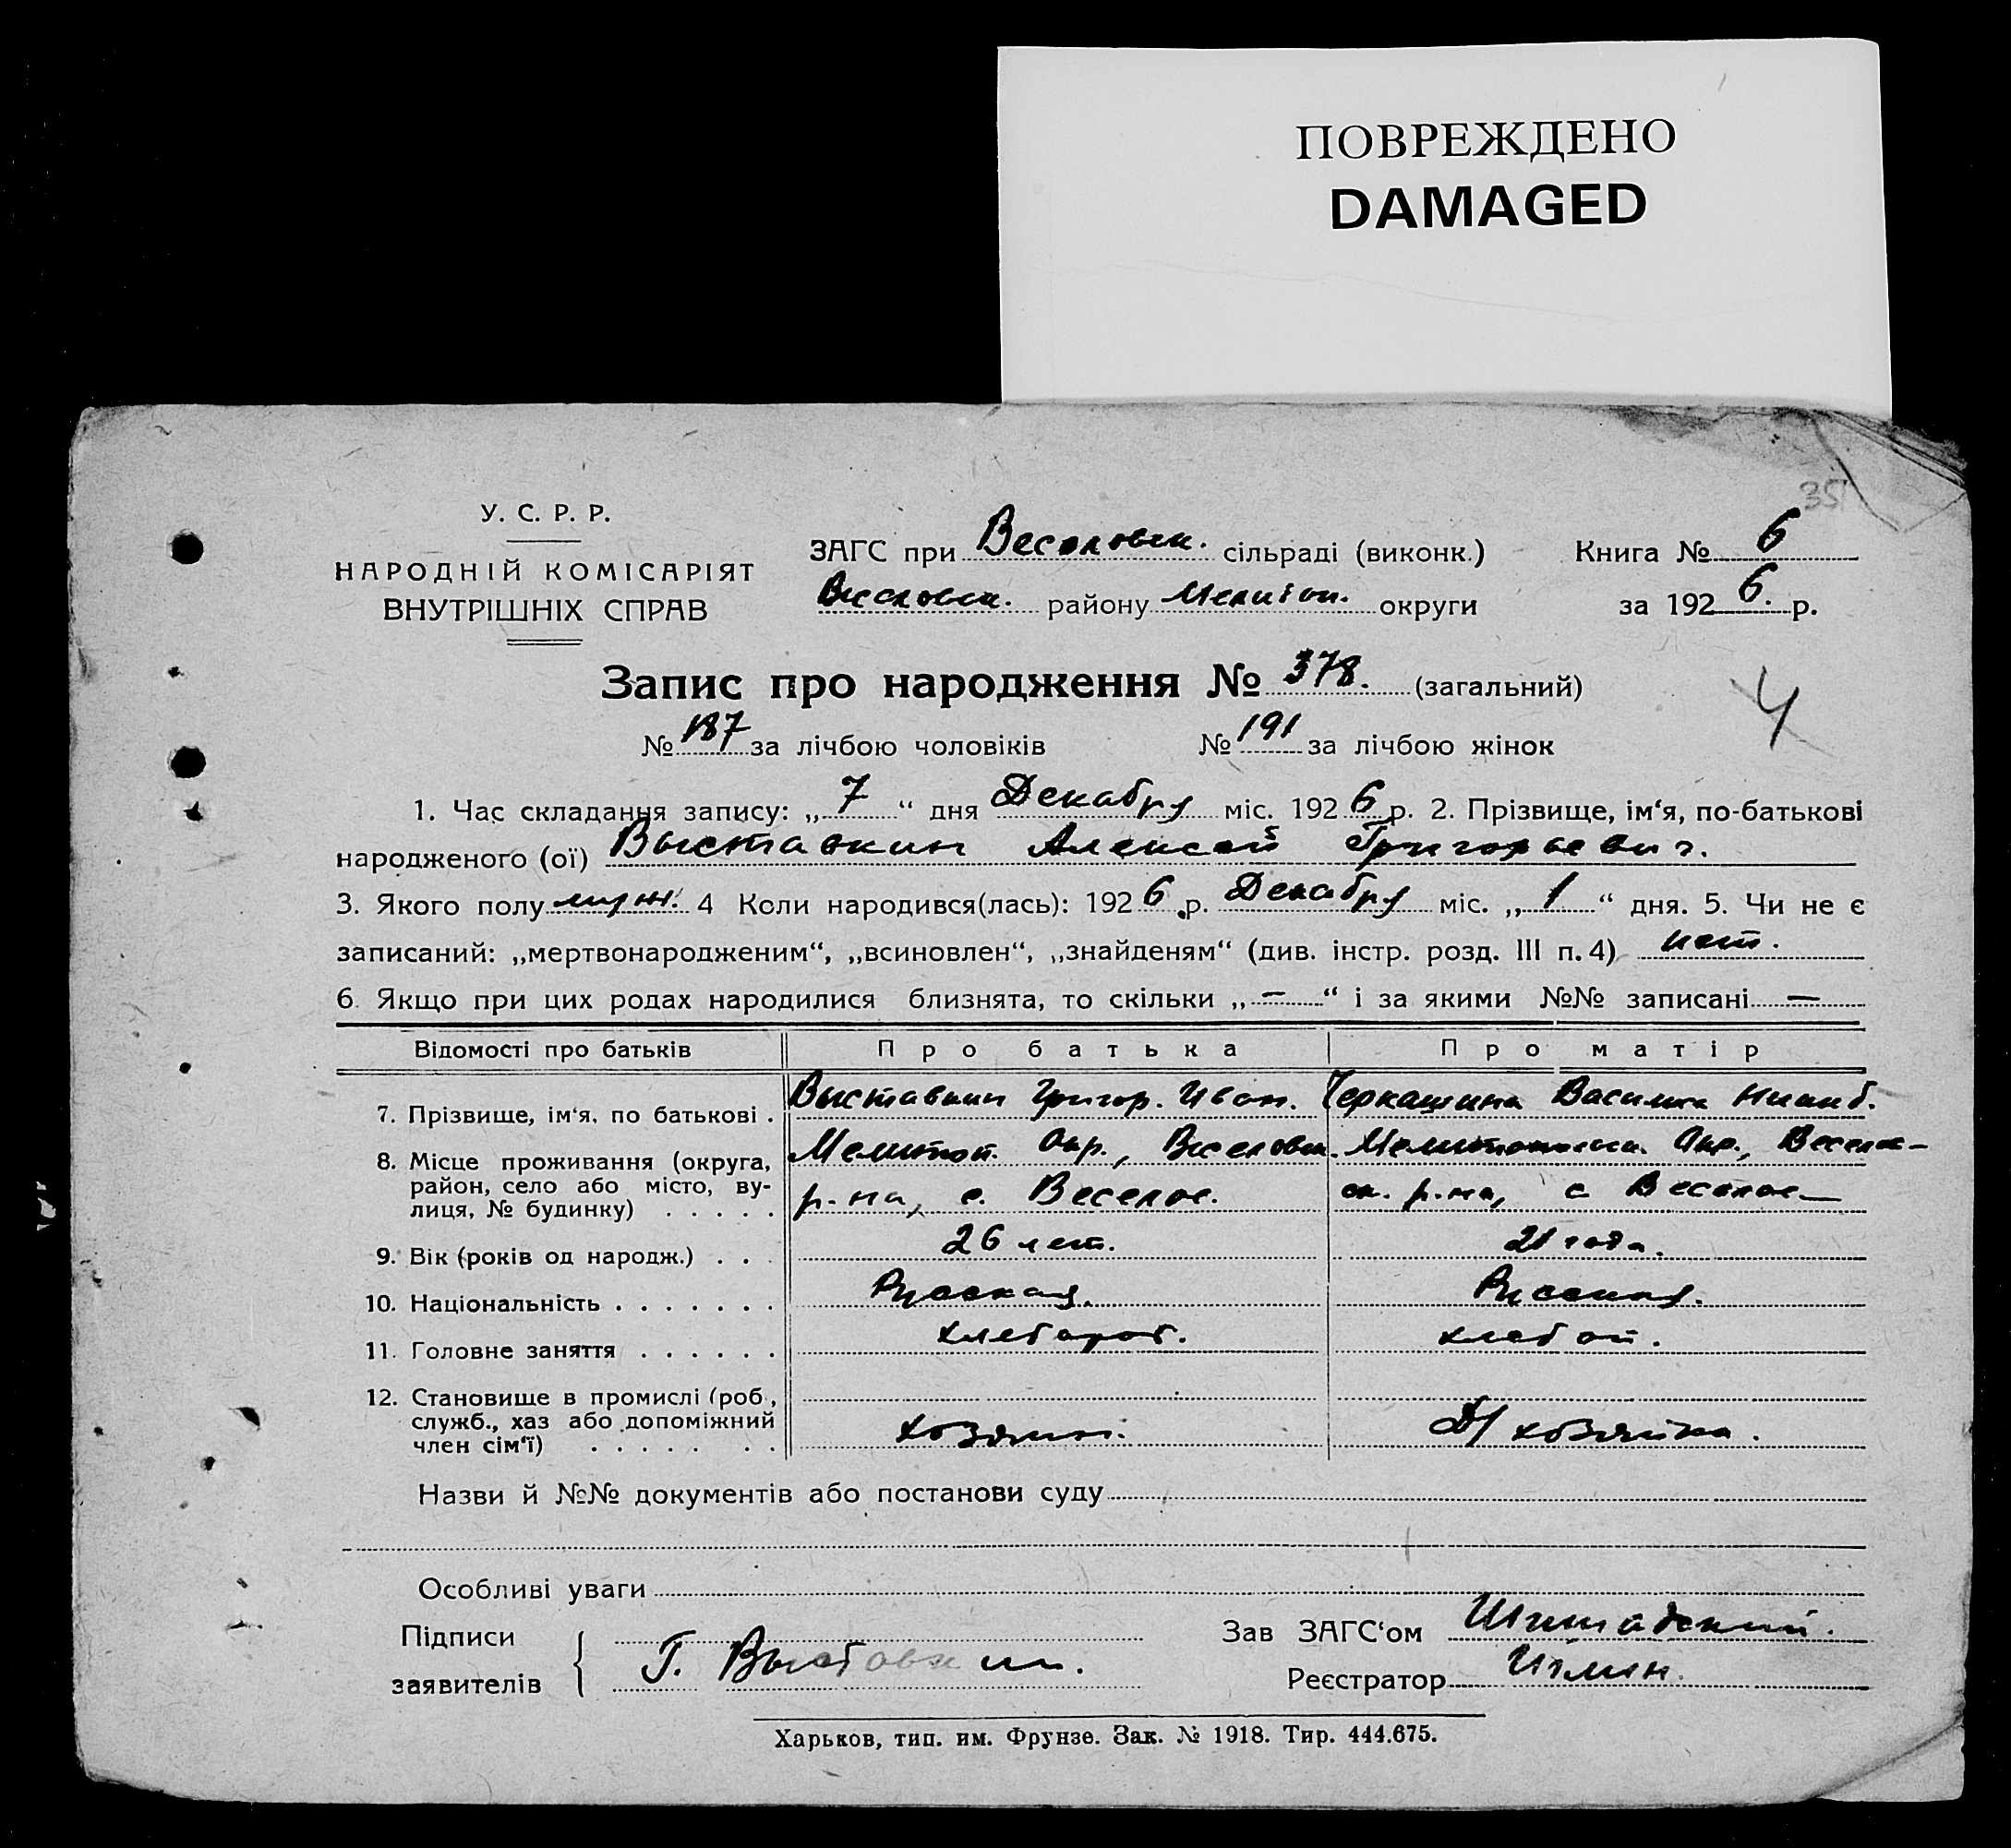 ПОВРЕЖДЕНО
DAMAGED
35
У. С. Р. Р.
НАРОДНІЙ КОМІСАРІЯТ
ВНУТРІШНІХ СПРАВ
ЗАГС при Веселовск. сільраді (виконк.) Книга № 6
Веселовск. району Мелитоп. округи за 1926. р.
Запис про народження № 378. (загальний)
4
№ 187 за лічбою чоловіків № 191 за лічбою жінок
1. Час складання запису: „7“ дня Декабря міс. 1926 р. 2. Прізвище, ім‘я, по-батькові
народженого (ої) Выставкин Алексей Григорьевич.
3. Якого полу муж. 4 Коли народився(лась): 1926 р. Декабря міс. „1“ дня. 5. Чи не є
записаний: „мертвонародженим“, „всиновлен“, „знайденям“ (див. інстр. розд. III п. 4) нет.
6. Якщо при цих родах народилися близнята, то скільки „—“ і за якими №№ записані —
Відомості про батьків Про батька Про матір
7. Прізвище, ім‘я, по батькові . Выставкин Григор. Иван. Черкашина Василиса
8. Місце проживання (округа, Мелитоп. Окр., Веселовск. Мелитопольск. Окр., Веселов-
район, село або місто, ву-
лиця, № будинку) . . . . . р-на, с. Веселое. ск. р-на, с Веселое—
9. Вік (років од народж.) . . . 26 лет. 21 года.
10. Національність . . . . . . . Русская. Русская.
11. Головне заняття . . . . . . хлебороб. хлебоп.
12. Становище в промислі (роб.,
служб., хаз або допоміжний
член сім‘ї) . . . . . . . хозяин. Д/хозяйка.
Назви й №№ документів або постанови суду
Особливі уваги
Підписи
заявителів Г. Выставкин.
Зав ЗАГС‘ом
Реєстратор
Харьков, тип. им. Фрунзе. Зак. № 1918. Тир. 444.675.